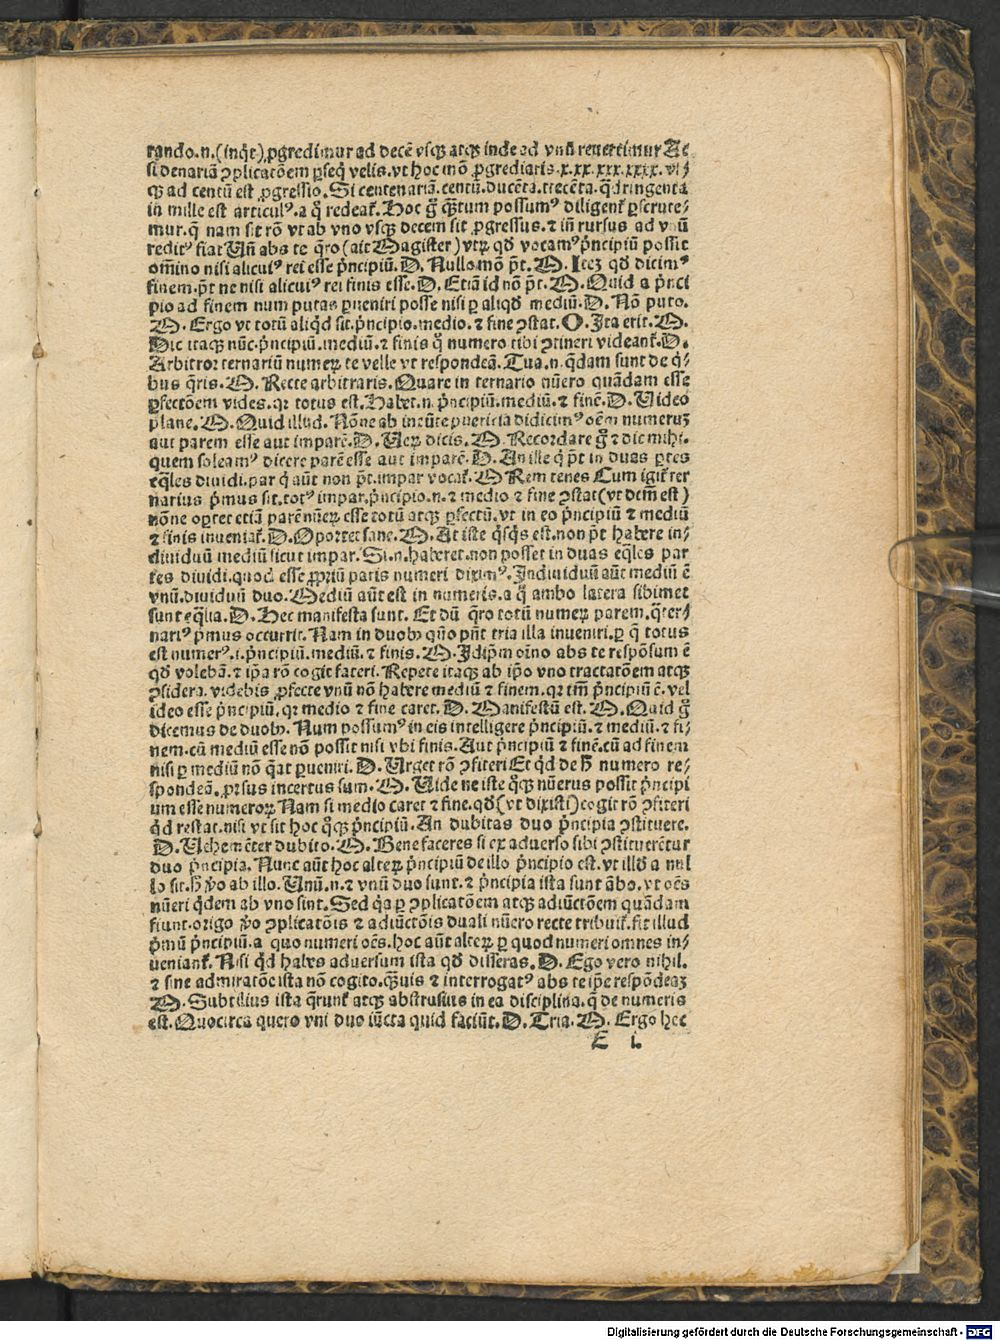 rando.n.(inq̄t) ꝓgredimur ad decē vsqꝫ atqꝫ inde ad vnū reuertimur Ac
si denariā ꝯplicatōem ꝑseq̄ velis.vt hoc mō ꝓgrediaris.x.xx.xxx.xxxx.
qꝫ ad centū est ꝓgressio. Si centenariā.centū.ducēta.trecēta.q̄dringenta
in mille est articulꝰ.a q̄ redeať. Hoc g̃ q̄ꝫtum possumꝰ diligenť ꝑscrute⸗
mur.q̄ nam sit rō vt ab vno vsqꝫ decem sit ꝓgressus.⁊ iñ rursus ad vnū
reditꝰ fiat Uñ abs te q̄ro (ait Magister) vtꝝ qd̄ vocamꝰ pͥncipiū possit
om̄ino nisi alicuiꝰ rei esse pͥncipiū. D. Nullo mō pt̄. M. Iteꝫ qd̄ dicimꝰ
finem.pt̄ ne nisi alicuiꝰ rei finis esse. D. Etiā id nō pt̄. M. Quid a pͥnci
pio ad finem num putas ꝑueniri posse nisi ꝑ aliqd̄ mediū. D. Nō puto.
M. Ergo vt totū aliq̄d sit.pͥncipio.medio.⁊ fine ꝯstat. D. Ita erit. M.
Dic itaqꝫ nūc.pͥncipiū.mediū.⁊ finis q̄ numero tibi ꝯtineri videanť. D.
Arbitror ternariū numeꝝ te velle vt respondeā. Tua.n.q̄dam sunt de q̄⸗
bus q̄ris. M. Recte arbitraris. Quare in ternario nūero quādam esse
ꝑfectōem vides.qꝛ totus est. Habet.n.pͥncipiū.mediū.⁊ finē. D. Uideo
plane. M. Quid illud. Nōne ab ineūte puericia didicimꝰ oēm numeruꝫ
aut parem esse aut imparē. D. Ueꝝ dicis. M. Recordare g̃ ⁊ dic mihi.
quem soleamꝰ dicere parē esse aut imparē. D. An ille q̄ pt̄ in duas ꝑtes
eq̄les diuidi.par q̄ aūt non pt̄.impar vocať. M. Rem tenes Cum igiť ter
narius pͥmus sit.totꝰ impar.pͥncipio.n.⁊ medio ⁊ fine ꝯstat (vt dcm̄ est)
nōne oꝑtet etiā parē nūeꝝ esse totū atqꝫ ꝑfectū.vt in eo pͥncipiū ⁊ mediū
⁊ finis inueniať. D. Oportet sane. M. At iste q̄sq̄s est.non pt̄ habere in⸗
diuiduū mediū sicut impar. Si.n.haberet.non posset in duas eq̄les par
tes diuidi.quod esse ꝓpriū paris numeri diximꝰ. Indiuiduū aūt mediū ē
vnū.diuiduū duo. Mediū aūt est in numeris.a q̄ ambo latera sibimet
sunt eq̄lia. D. Hec manifesta sunt. Et dū q̄ro totū numeꝝ parem.q̄ter⸗
nariꝰ pͥmus occurrit. Nam in duobꝫ quō pn̄t tria illa inueniri.ꝑ q̄ totus
est numerꝰ.i.pͥncipiū.mediū.⁊ finis. M. Idip̄m oīno abs te respōsum ē
qd̄ volebā.⁊ ip̄a rō cogit fateri. Repete itaqꝫ ab ip̄o vno tractatōem atqꝫ
ꝯsidera.videbis ꝓfecte vnū nō habere mediū ⁊ finem.qꝛ tm̄ pͥncipiū ē.vel
ideo esse pͥncipiū.qꝛ medio ⁊ fine caret. D. Manifestū est. M. Quid g̃
dicemus de duobꝫ. Num possumꝰ in eis intelligere pͥncipiū.⁊ mediū.⁊ fi⸗
nem.cū mediū esse nō possit nisi vbi finis. Aut pͥncipiū ⁊ finē.cū ad finem
nisi ꝑ mediū nō q̄at ꝑueniri. D. Urget rō ꝯfiteri Et q̄d de h̄ numero re⸗
spondeā.ꝓrsus incertus sum. M. Uide ne iste q̄qꝫ nūerus possit pͥncipi
um esse numeroꝝ Nam si medio caret ⁊ fine.qd̄ (vt dixisti) cogit rō ꝯfiteri
q̄d restat.nisi vt sit hoc q̄qꝫ pͥncipiū. An dubitas duo pͥncipia ꝯstituere.
D. Uehemēter dubito. M. Bene faceres si ex aduerso sibi ꝯstituerētur
duo pͥncipia. Nunc aūt hoc alteꝝ pͥncipiū de illo pͥncipio est.vt illd̄ a nul
lo sit.h̄ v̄o ab illo. Unū.n.⁊ vnū duo sunt.⁊ pͥncipia ista sunt ābo.vt oēs
nūeri q̄dem ab vno sint. Sed q̄a ꝑ ꝯplicatōem atqꝫ adiūctōem quādam
fiunt.origo v̄o ꝯplicatōis ⁊ adiūctōis duali nūero recte tribuiť.fit illud
pͥmū pͥncipiū.a quo numeri oēs.hoc aūt alteꝝ ꝑ quod numeri omnes in⸗
ueniant̄. Nisi q̄d habes aduersum ista qd̄ disseras. D. Ego vero nihil.
⁊ sine admiratōe ista nō cogito.q̄ꝫuis ⁊ interrogatꝰ abs te ip̄e respōdeaꝫ
M. Subtilius ista q̄runť atqꝫ abstrusius in ea disciplina.q̄ de numeris
est. Quocirca quero vni duo iūcta quid faciūt. D. Tria. M. Ergo hec
E i.
Digitalisierung gefördert durch die Deutsche Forschungsgemeinschaft - DFG